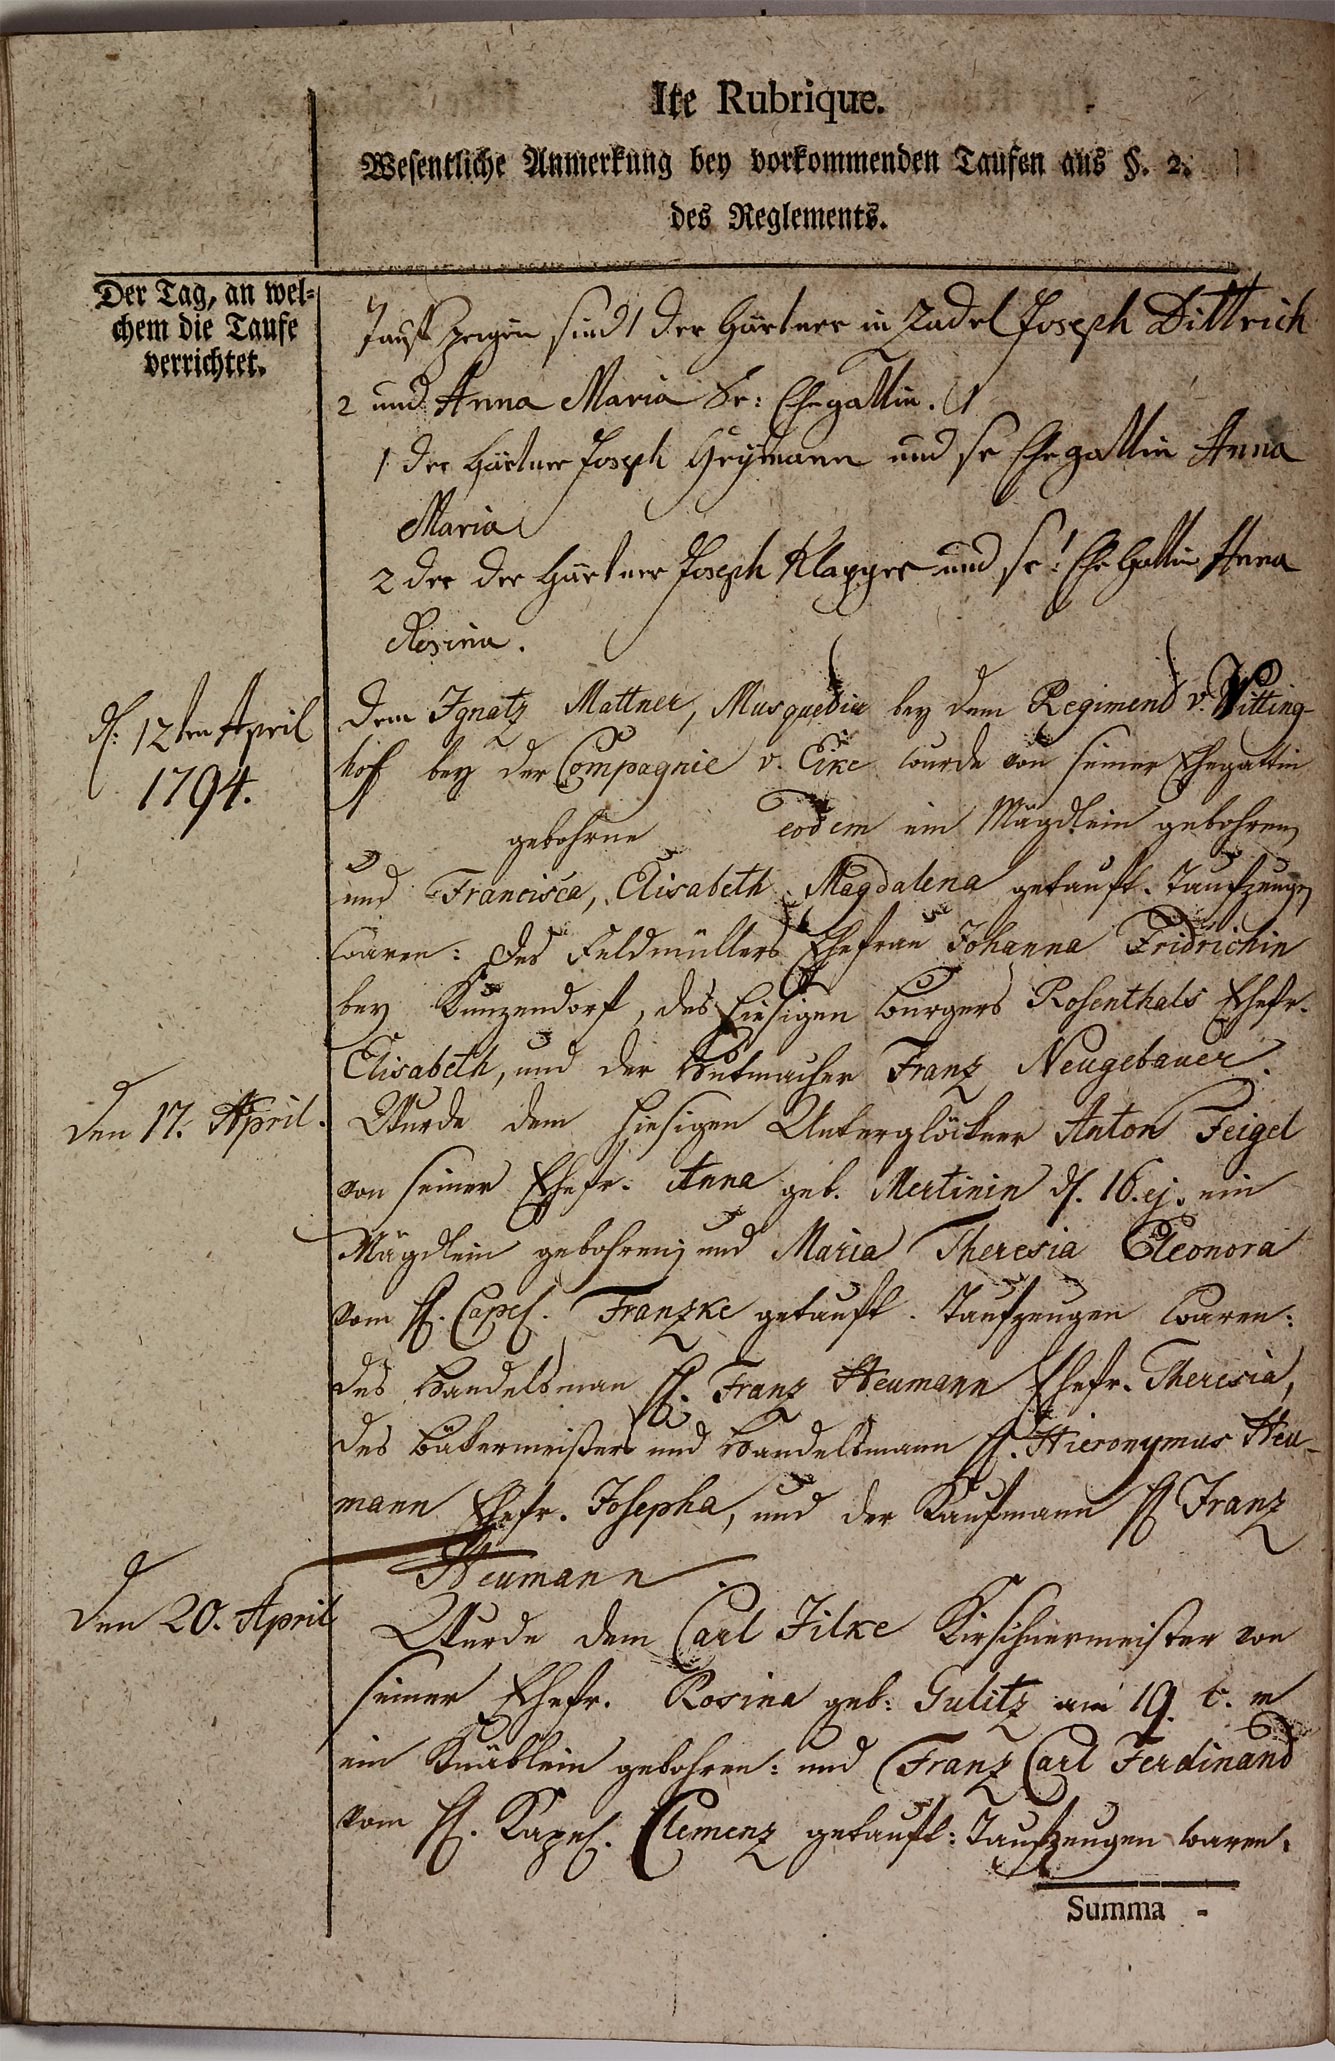 Ite Rubrique.
Wesentliche Anmerkung bey vorkommenden Taufen aus §. 2.
des Reglements.
Der Tag, an wel-
chem die Taufe
verrichtet.
Taufzeigen sind 1 der Gärtner in Zadel Joseph Dittrich
2 und Anna Maria Se: Ehegattin.
1 der Gärtner Joseph Heymann und se Ehegattin Anna
Maria
2 der der Gärtner Joseph Klapper und se: EheGattin Anna
Rosina.
d. 12ten April
1794.
Dem Ignatz Mattner, Musquedir bey dem Regimend v. Witting-
hoff bey der Compagnie v. Eike wurde von seiner Ehegattin
gebohrne eodem ein Mägdlein gebohren,
und Francisca, Elisabeth Magdalena getauft. Taufzeugen
waren: des Feldmüllers Ehefrau Johanna Fridrichin
bey Kunzendorf, des hiesigen burgers Rosenthals Ehefr.
Elisabeth, und der Hutmacher Franz Neugebauer.
den 17. April.
Wurde dem hiesigen Unterglöckner Anton Feigel
von seiner Ehefr. Anna geb. Mertinin d. 16. ej. ein
Mägdlein gebohren; und Maria Theresia Eleonora
vom H. Capel. Franzke getauft. Taufzeugen waren:
des Handelsman H. Franz Heumann Ehefr. Theresia,
des bäkermeisters und Handelsmann H. Hieronymus Heu-
mann Ehefr. Josepha, und der Kaufmann H Franz
Heumann
den 20. April
Wurde dem Carl Jilke Kirschnermeister von
seiner Ehefr. Rosina geb: Gulitz am 19. c. m
ein Knäblein gebohren: und Franz Carl Ferdinand
vom H. Kapel. Clemenz getauft: Taufzeugen waren.
Summa -